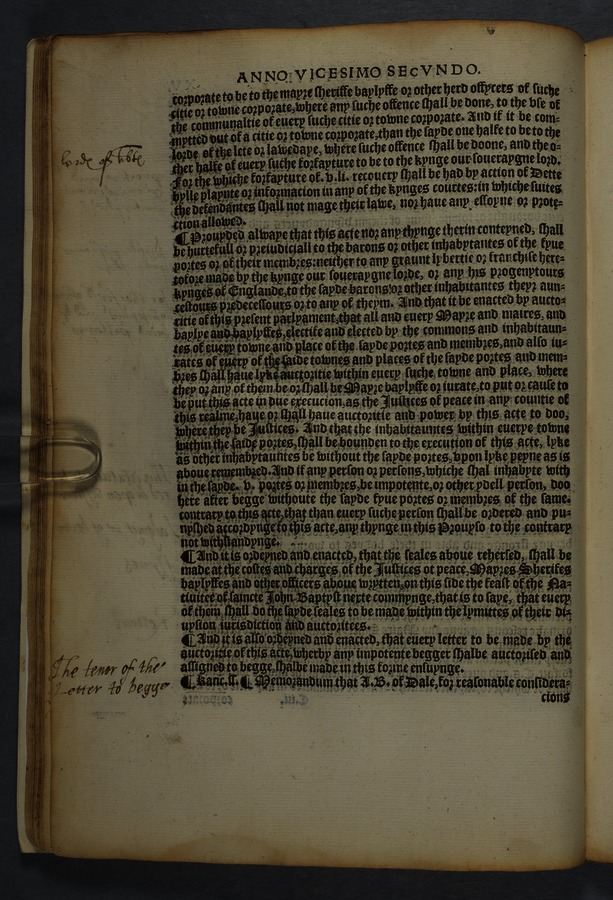 ANNO VICESIMO SECVNDO.
corporate to be to the mayre sheriffe baylyffe or other herd offycers of suche
citie or towne corporate, where any suche offence shall be done, to the vse of
the communaltie of euery suche citie or towne corporate. And if it be com-
mytted out of a citie or towne corporate, than the sayde one halfe to be to the
lorde of the lete or lawedaye, where suche offence shall be doone, and the o-
ther halfe of euery suche forfayture to be to the kynge our soueraygne lord.
For the whiche forfayture of .v.li. recouery shall be had by action of Dette
bylle playnte or information in any of the kynges courtes: in whiche suites
the defendantes shall not mage their lawe, nor haue any essoyne or prote-
ction allowed.
¶ Prouyded alwaye that this acte nor any thynge therin conteyned, shall
be hurtefull or preiudiciall to the barons or other inhabytantes of the fyue
portes or of their membres: neither to any graunt lybertie or franchise here-
tofore made by the kynge our soueraygne lorde, or any his progenytours
kynges of Englande, to the sayde barons or other inhabitantes theyr aun-
cestours predecessours or to any of theym. And that it be enacted by aucto-
ritie of this present parlyament, that all and euery Mayre and maires, and
baylye and baylyffes, electife and elected by the commons and inhabitaun-
tes of euery towne and place of the sayde portes and membres, and also iu-
rates of euery of the saide townes and places of the sayde portes and mem-
bres shall haue lyke auctoritie within euery suche towne and place, where
they or any of them be or shall be Mayre baylyffe or iurate, to put or cause to
be put this acte in due execucion, as the Justices of peace in any countie of
this realme, haue or shall haue auctoritie and power by this acte to doo,
where they be Justices. And that the inhabitauntes within euerye towne
within the saide portes, shall be bounden to the execution of this acte, lyke
as other inhabytauntes be without the sayde portes, vpon lyke peyne as is
aboue remembred. And if any person or persons, whiche shal inhabyte with
in the sayde .v. portes or membres, be impotente, or other ydell person, doo
here after begge withoute the sayde fyue portes or membres of the same,
contrary to this acte, that than euery suche person shall be ordered and pu-
nyshed accordynge to this acte, any thynge in this Prouyso to the contrary
not withstandynge.
¶ And it is ordeyned and enacted, that the seales aboue rehersed, shall be
made at the costes and charges of the Justices of peace, Mayres Sherifes
baylyffes and other officers aboue wrytten, on this side the feast of the Na-
tiuitee of saincte John Baptyst nexte commynge, that is to saye, that euery
of them shall do the sayde seales to be made within the lymittes of their di-
uysion iurisdiction and auctoritees.
¶ And it is also ordeyned and enacted, that euery letter to be made by the
auctoritie of this acte, wherby any impotente begger shalbe auctorised and
assigned to begge, shalbe made in this forme ensuynge.
The tenor of the
Letter to begge
¶ Kanc. ss. ¶ Memorandum that A.B. of Dale, for reasonable considera-
cions